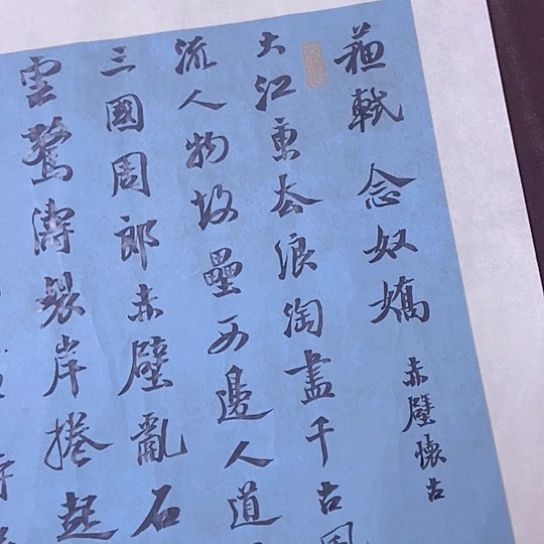 蘇軾 念奴嬌 赤壁懷古
大江東去浪淘盡千古風
流人物故壘西邊人道
三國周郎赤壁亂石
雲驚濤裂岸捲起